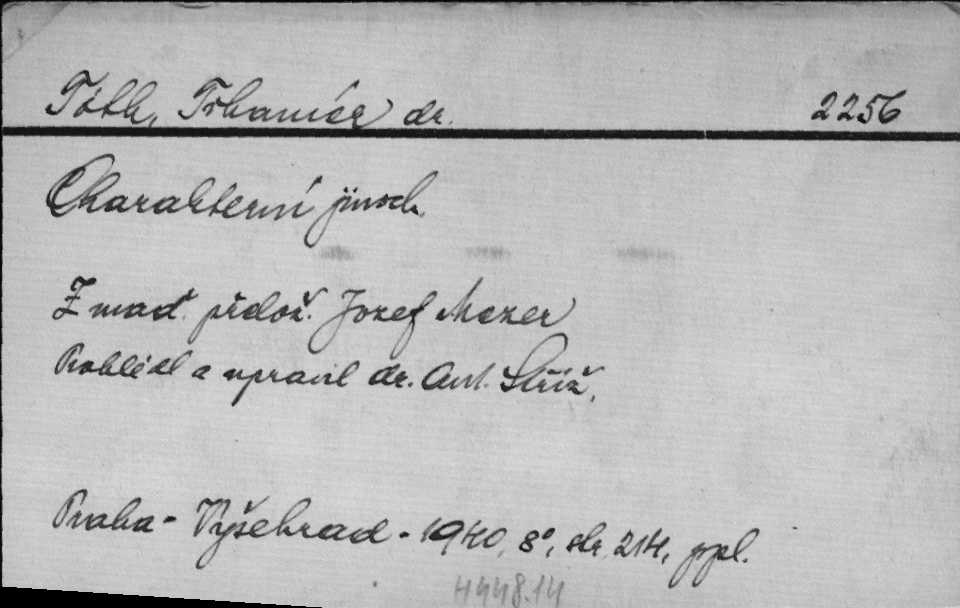 Tóth, Tihamér dr. 2256
Charakterní jinoch.
Z maď. přelož. Jozef Mezer
Prohlédl a upravil dr. Ant. Stříž.
Praha - Vyšehrad - 1940, 8°, str. 214, ppl.
H448.14